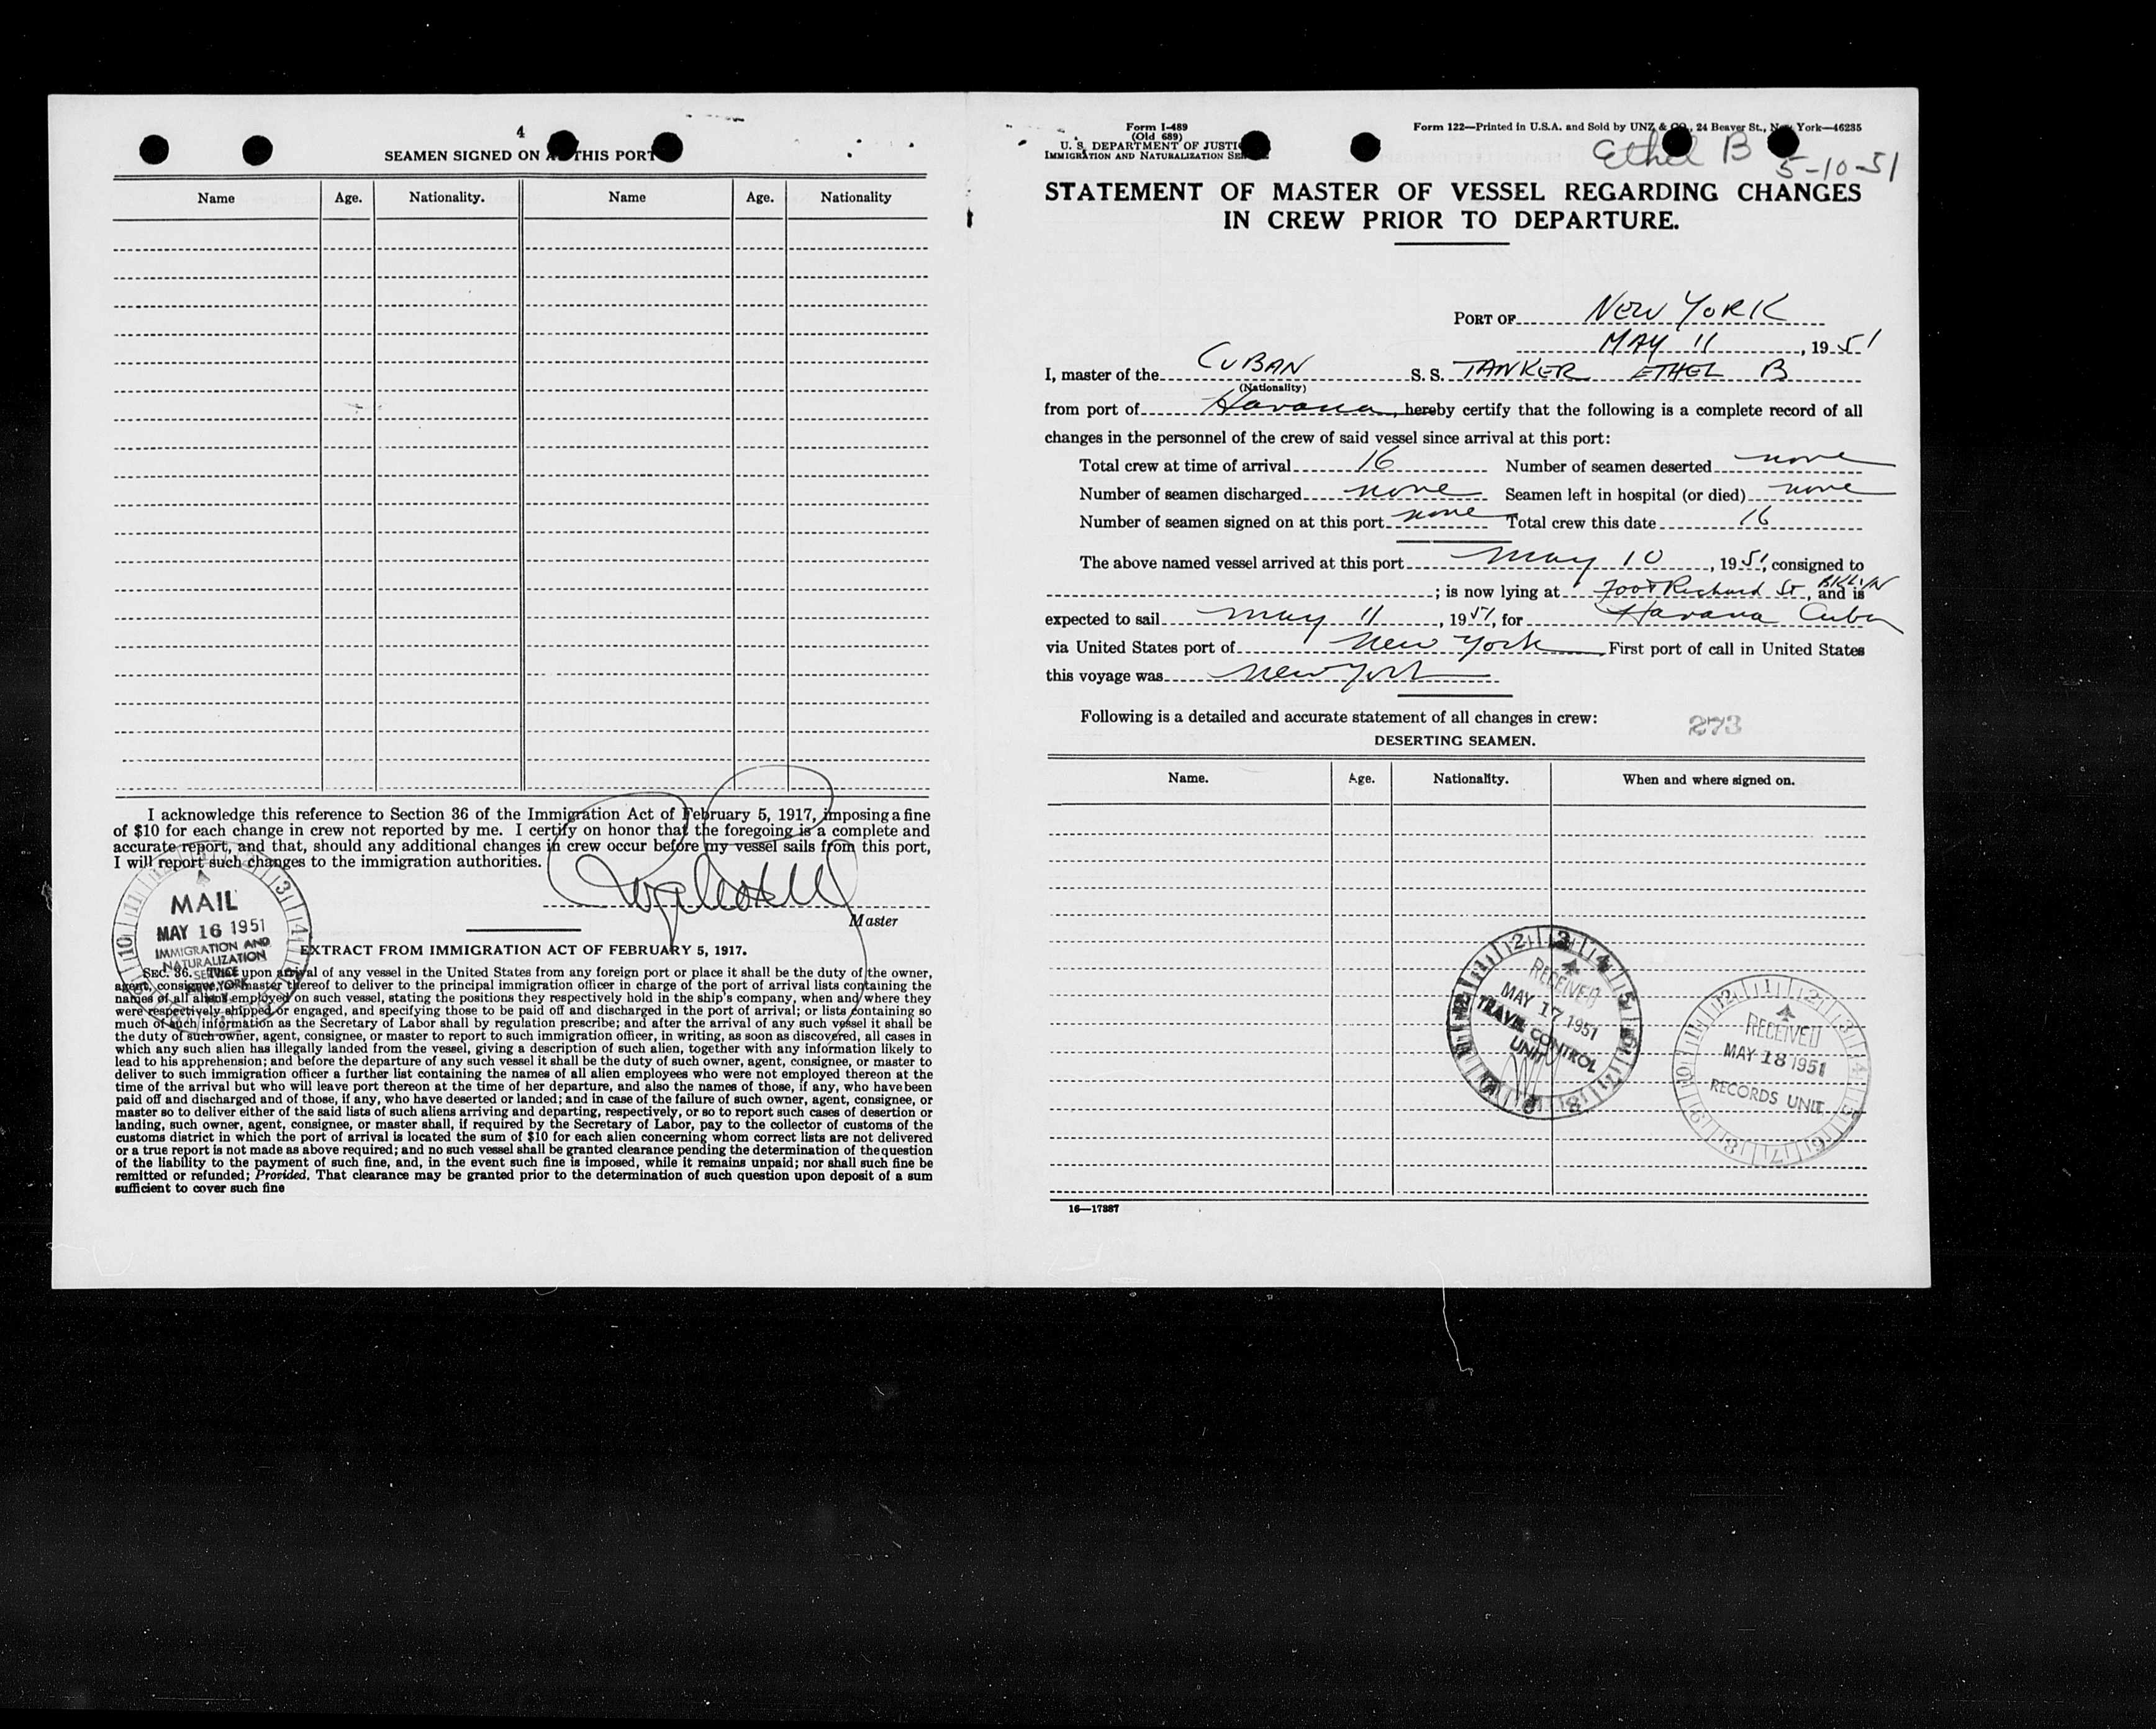 4
SEAMEN SIGNED ON AT THIS PORT
Name Age. Nationality. Name Age. Nationality
I acknowledge this reference to Section 36 of the Immigration Act of February 5, 1917, imposing a fine
of $10 for each change in crew not reported by me. I certify on honor that the foregoing is a complete and
accurate report, and that, should any additional changes in crew occur before my vessel sails from this port,
I will report such changes to the immigration authorities.
Master
MAIL
MAY 16 1951
IMMIGRATION AND
NATURALIZATION
SERVICE
NEW YORK
EXTRACT FROM IMMIGRATION ACT OF FEBRUARY 5, 1917.
SEC. 36. That upon arrival of any vessel in the United States from any foreign port or place it shall be the duty of the owner,
agent, consignee, or master thereof to deliver to the principal immigration officer in charge of the port of arrival lists containing the
names of all aliens employed on such vessel, stating the positions they respectively hold in the ship's company, when and where they
were respectively shipped or engaged, and specifying those to be paid off and discharged in the port of arrival; or lists containing so
much of such information as the Secretary of Labor shall by regulation prescribe; and after the arrival of any such vessel it shall be
the duty of such owner, agent, consignee, or master to report to such immigration officer, in writing, as soon as discovered, all cases in
which any such alien has illegally landed from the vessel, giving a description of such alien, together with any information likely to
lead to his apprehension; and before the departure of any such vessel it shall be the duty of such owner, agent, consignee, or master to
deliver to such immigration officer a further list containing the names of all alien employees who were not employed thereon at the
time of the arrival but who will leave port thereon at the time of her departure, and also the names of those, if any, who have been
paid off and discharged and of those, if any, who have deserted or landed; and in case of the failure of such owner, agent, consignee, or
master so to deliver either of the said lists of such aliens arriving and departing, respectively, or so to report such cases of desertion or
landing, such owner, agent, consignee, or master shall, if required by the Secretary of Labor, pay to the collector of customs of the
customs district in which the port of arrival is located the sum of $10 for each alien concerning whom correct lists are not delivered
or a true report is not made as above required; and no such vessel shall be granted clearance pending the determination of the question
of the liability to the payment of such fine, and, in the event such fine is imposed, while it remains unpaid; nor shall such fine be
remitted or refunded; Provided, That clearance may be granted prior to the determination of such question upon deposit of a sum
sufficient to cover such fine
Form I-489
(Old 689)
U. S. DEPARTMENT OF JUSTICE
IMMIGRATION AND NATURALIZATION SERVICE
Form 122—Printed in U.S.A. and Sold by UNZ & CO., 24 Beaver St., New York—46235
Ethel B
5-10-51
STATEMENT OF MASTER OF VESSEL REGARDING CHANGES
IN CREW PRIOR TO DEPARTURE.
PORT OF NEW YORK
MAY 11, 1951
I, master of the CUBAN S. S. TANKER ETHEL B
(Nationality)
from port of Havana, hereby certify that the following is a complete record of all
changes in the personnel of the crew of said vessel since arrival at this port:
Total crew at time of arrival 16 Number of seamen deserted none
Number of seamen discharged none Seamen left in hospital (or died) none
Number of seamen signed on at this port none Total crew this date 16
The above named vessel arrived at this port May 10, 1951, consigned to
; is now lying at Foot Richard St BKLYN, and is
expected to sail May 11, 1951, for Havana Cuba
via United States port of New York First port of call in United States
this voyage was New York
Following is a detailed and accurate statement of all changes in crew:
273
DESERTING SEAMEN.
Name. Age. Nationality. When and where signed on.
RECEIVED
MAY 17 1951
TRAVEL CONTROL
UNIT
RECEIVED
MAY 18 1951
RECORDS UNIT
16—17387